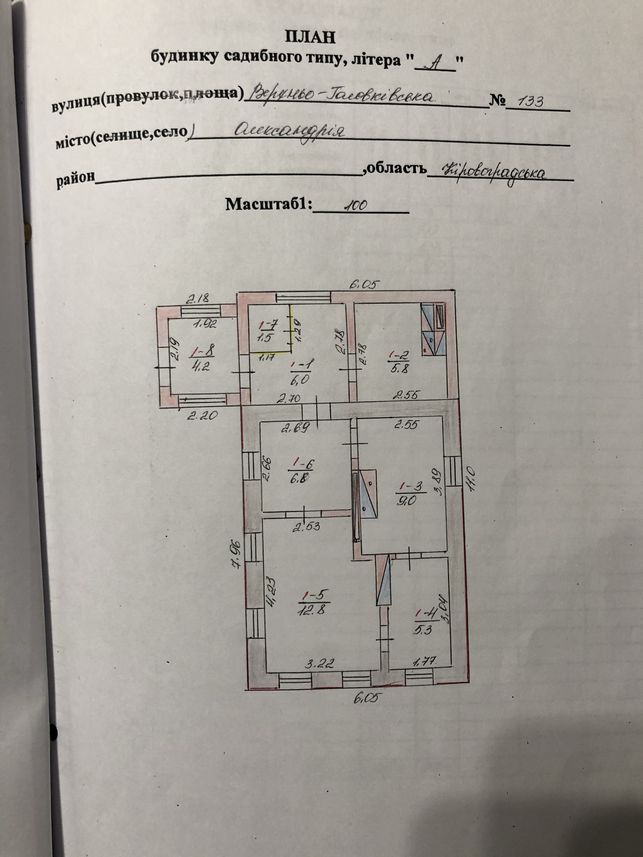 ПЛАН
будинку садибного типу, літера "А"
вулиця(провулок,площа) Верхньо-Головківська № 133
місто(селище,село) Олександрія
район ,область Кіровоградська
Масштаб1: 100
6,05
2.18
1.92
2.19
1-8
4.2
2.20
1-7
1.5
1.29
1.17
1-1
6,0
2.78
2.70
2.78
1-2
5.8
2.55
2.69
2.66
1-6
6.8
2.55
1-3
9,0
3.89
11.0
2.53
7.96
4,23
1-5
12.8
3.22
1-4
5.3
3,04
1.77
6,05